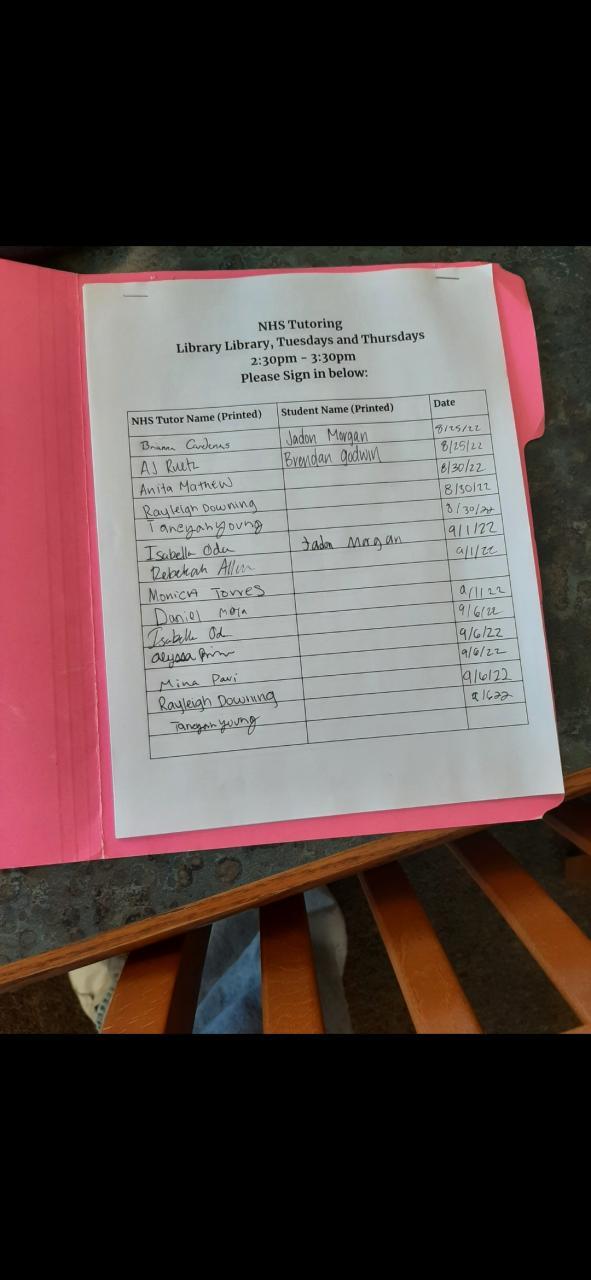 NHS Tutoring
Library Library, Tuesdays and Thursdays
2:30pm - 3:30pm
Please Sign in below:
NHS Tutor Name (Printed) Student Name (Printed) Date
Brianna Cardenas Jadon Morgan 8/25/22
AJ Ruetz Brendan godwin 8/25/22
Anita Mathew 8/30/22
Rayleigh Downing 8/30/22
Taneyah young 8/30/22
Isabella Odu Jadon Morgan 9/1/22
Rebekah Allen 9/1/22
Monica Torres
Daniel 9/1/22
Isabella 9/6/22
alyssa 9/6/22
Mina 9/6/22
Rayleigh Downing 9/6/22
Taneyah young